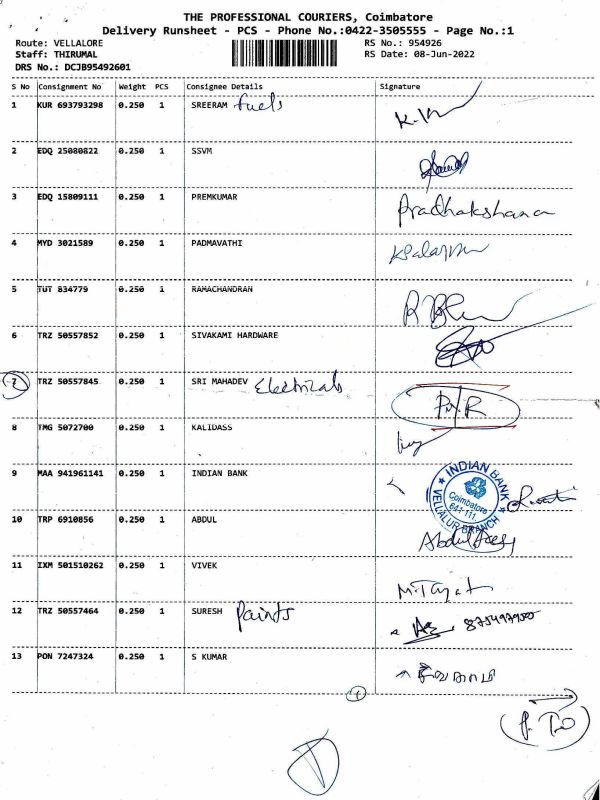 THE PROFESSIONAL COURIERS, Coimbatore
Delivery Runsheet - PCS - Phone No.:0422-3505555 - Page No.:1
Route: VELLALORE
Staff: THIRUMAL
DRS No.: DCJB95492601
RS No.: 954926
RS Date: 08-Jun-2022
S No Consignment No Weight PCS Consignee Details Signature
1 KUR 693793298 0.250 1 SREERAM fuels
2 EDQ 25080822 0.250 1 SSVM
3 EDQ 15809111 0.250 1 PREMKUMAR Pradhakshana
4 MYD 3021589 0.250 1 PADMAVATHI
5 TUT 834779 0.250 1 RAMACHANDRAN
6 TRZ 50557852 0.250 1 SIVAKAMI HARDWARE
7 TRZ 50557845 0.250 1 SRI MAHADEV Electricals
8 TMG 5072700 0.250 1 KALIDASS
9 MAA 941961141 0.250 1 INDIAN BANK
INDIAN BANK
Coimbatore
641 111
VELLALUR BRANCH
10 TRP 6910856 0.250 1 ABDUL Abdul
11 IXM 501510262 0.250 1 VIVEK
12 TRZ 50557464 0.250 1 SURESH Paints
13 PON 7247324 0.250 1 S KUMAR